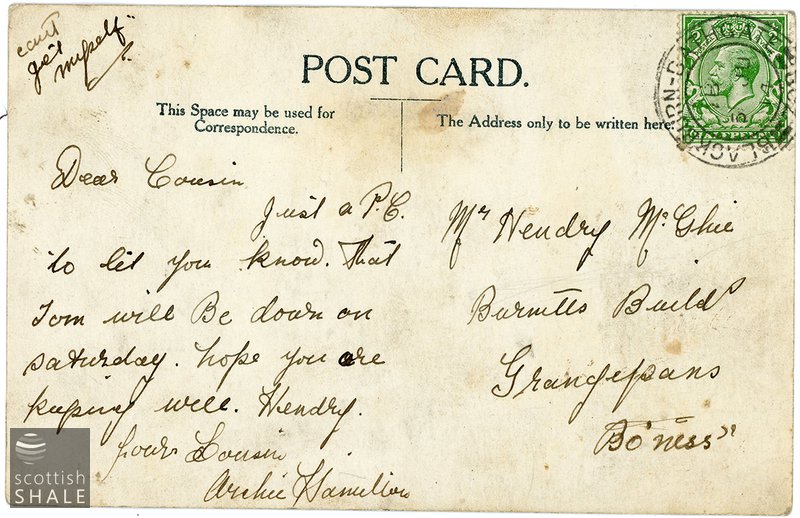 can't
get
myself
POST CARD.
This Space may be used for
Correspondence.
The Address only to be written here.
Dear Cousin
Just a P.C.
to let you know. That
Tom will Be down on
saturday. hope you are
keeping well. Hendry.
yours Cousin
Archie Hamilton
Mr Hendry McGhie
Burnetts Builds
Grangepans
Bo'ness"
scottish
SHALE